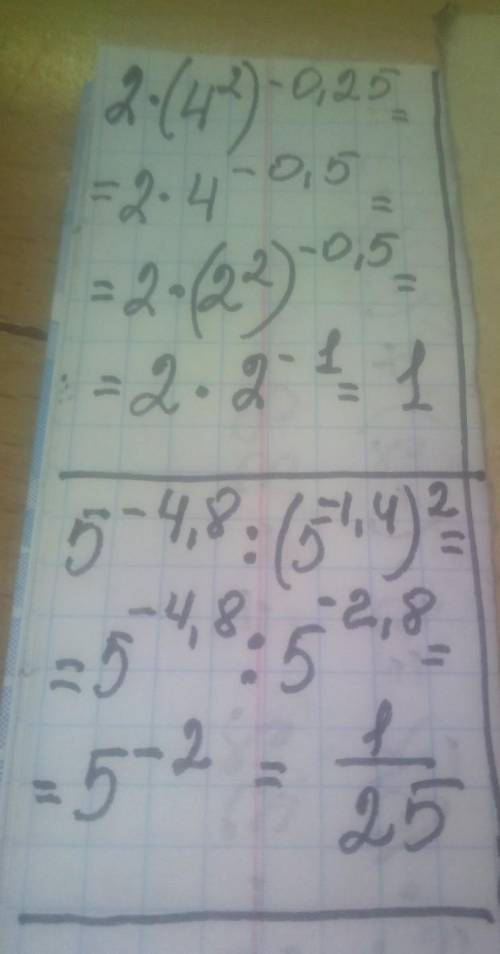 2·(4²)^-0,25 =
= 2·4^-0,5 =
= 2·(2²)^-0,5 =
= 2·2^-1 = 1
5^-4,8 : (5^-1,4)² =
= 5^-4,8 : 5^-2,8 =
= 5^-2 = 1/25